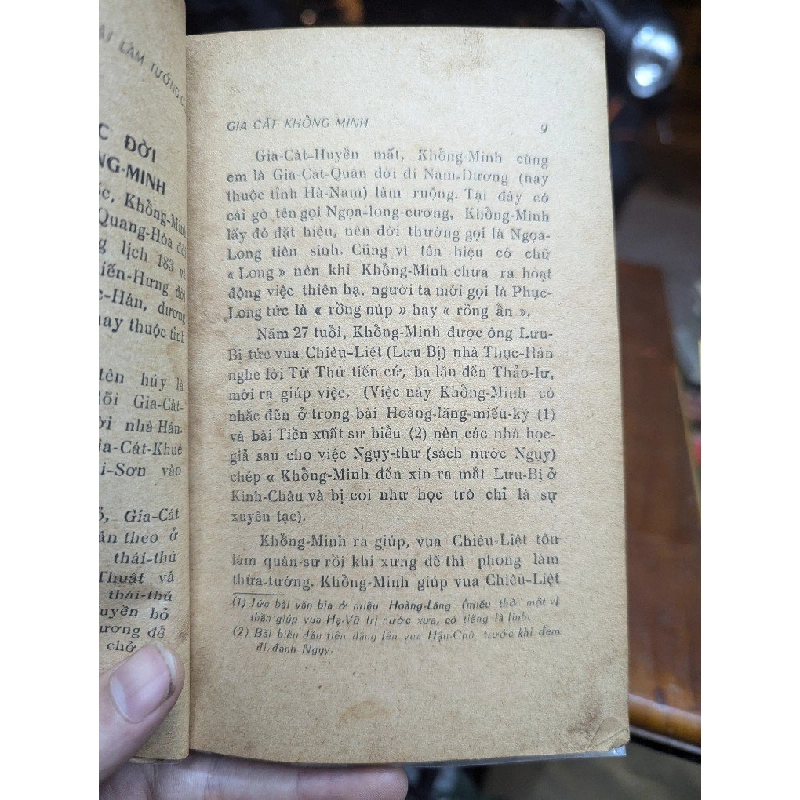 ÁT LÀM TƯỚNG
C ĐỜI
NG-MINH
ốc, Khổng-Minh
Quang-Hòa
g lịch 183
iến-Hưng đời
c-Hán, dương
nay thuộc tỉnh
tên húy là
dõi Gia-Cát-
ời nhà Hán.
Gia-Cát-Khuê
i-Sơn văn
Gia-Cát
ân theo ở
thái-thú
Thuật và
thái-thú
uyền bỏ
ương để
chở
GIA CÁT KHỔNG MINH 9
Gia-Cát-Huyền mất, Khổng-Minh cùng
em là Gia-Cát-Quân dời đi Nam-Dương (nay
thuộc tỉnh Hà-Nam) làm ruộng. Tại đây có
cái gò tên gọi Ngọa-long-cương, Khổng-Minh
lấy đó đặt hiệu, nên đời thường gọi là Ngọa-
Long tiên sinh. Cũng vì tên hiệu có chữ
« Long » nên khi Khổng-Minh chưa ra hoạt
động việc thiên hạ, người ta mới gọi là Phục-
Long tức là « rồng núp » hay « rồng ẩn ».
Năm 27 tuổi, Khổng-Minh được ông Lưu-
Bị tức vua Chiêu-Liệt (Lưu Bị) nhà Thục-Hán
nghe lời Từ Thứ tiến cử, ba lần đến Thảo-lư,
mời ra giúp việc. (Việc này Khổng-Minh có
nhắc đến ở trong bài Hoàng-lăng-miếu-ký (1)
và bài Tiền xuất sư biểu (2) nên các nhà học-
giả sau cho việc Ngụy-thư (sách nước Ngụy)
chép « Khổng-Minh đến xin ra mắt Lưu-Bị ở
Kinh-Châu và bị coi như học trò chỉ là sự
xuyên tạc).
Khổng-Minh ra giúp, vua Chiêu-Liệt tôn
làm quân-sư rồi khi xưng đế thì phong làm
thừa-tướng. Khổng-Minh giúp vua Chiêu-Liệt
(1) Tức bài văn bia ở miếu Hoàng-Lăng (miếu thờ một vị
thần giúp vua Hạ-Vũ trị nước xưa, có tiếng là linh.
(2) Bài biểu đầu tiên dâng lên vua Hậu-Chủ, trước khi đem
đi đánh Ngụy.